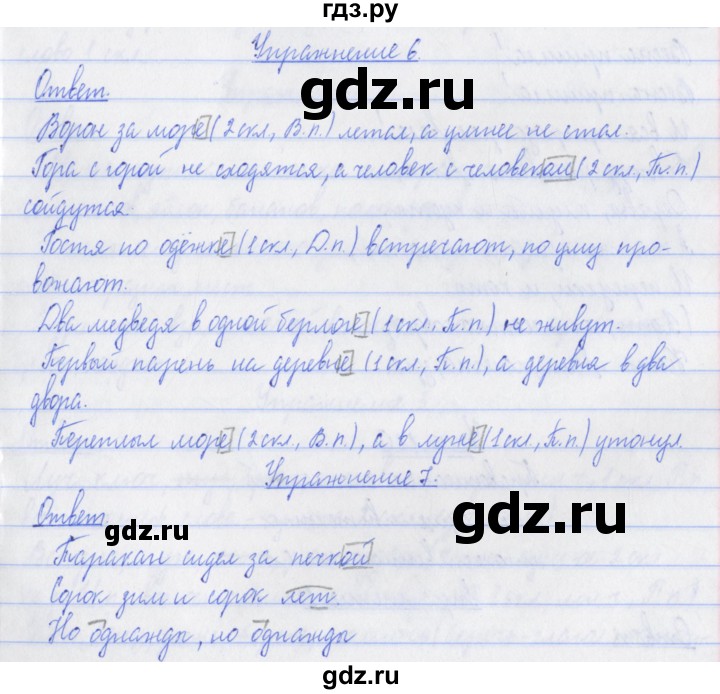 гдз.ру
Упражнение 6.
gdz.ru
gdz.ru
Ответ.
Ворон за море (2 скл, В.п.) летал, а умнее не стал.
Гора с горой не сходятся, а человек с человеком (2 скл, Т.п.)
сойдутся.
Гостя по одёжке (1 скл, Д.п.) встречают, по уму про-
вожают.
Два медведя в одной берлоге (1 скл, П.п.) не живут.
Первый парень на деревне (1 скл, П.п.), а деревня в два
двора.
Переплыл море (2 скл, В.п.), а в луже (1 скл, П.п.) утонул.
Упражнение 7.
Ответ.
gdz.ru
gdz.ru
Таракан сидел за печкой
Сорок зим и сорок лет.
Но однажды, но однажды
gdz.ru
gdz.ru